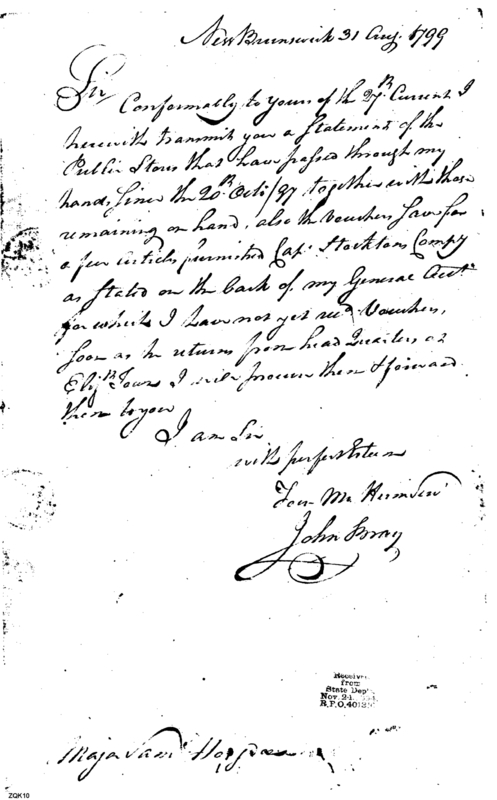 New Brunswick 31 Aug. 1799
Sir
Conformably to yours of the 27th Current I
herewith transmit you a Statement of the
Public Stores that have passed through my
hands, Since the 20th Octr/97 together with those
remaining on hand, also the Vouchers Save for
a few articles furnished Cap. Stocktons Compy
as Stated on the back of my General Acct
for which I have not yet recd Vouchers,
Soon as he returns from head Quarters at
Elizth Town I will procure them & forward
them to you
I am Sir
with perfect Esteem
Your Mo
John Bray
Receive
from
State Dep
Nov. 24
R.P.O. 4013
Major
ZQK10